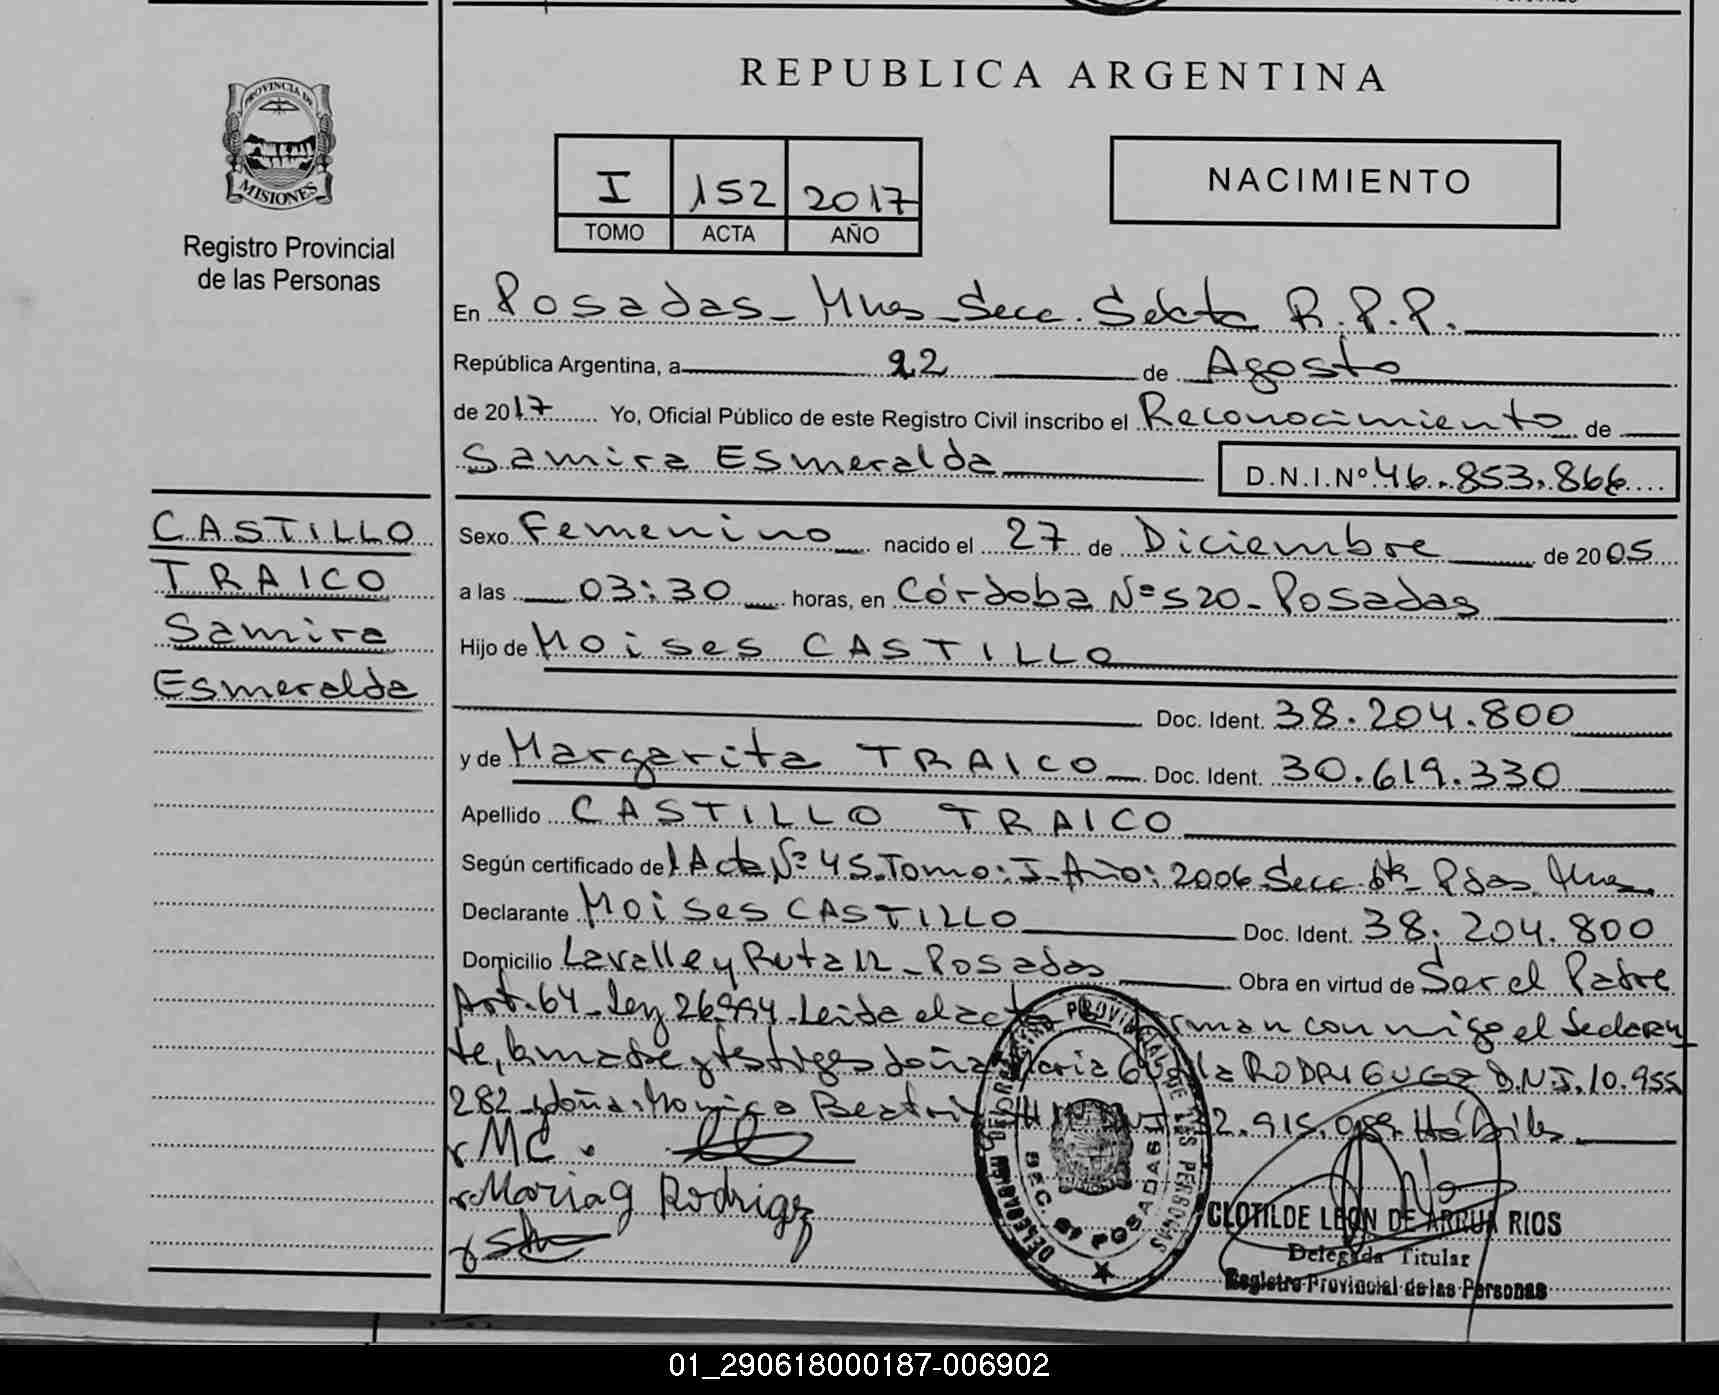 REPUBLICA ARGENTINA
PROVINCIA DE
MISIONES
Registro Provincial
de las Personas
I 152 2017
TOMO ACTA AÑO
NACIMIENTO
En Posadas - Mnes - Secc. Sexta R.P.P.
República Argentina, a 22 de Agosto
de 2017 Yo, Oficial Público de este Registro Civil inscribo el Reconocimiento de
Samira Esmeralda D.N.I.Nº 46.853.866
CASTILLO
TRAICO
Samira
Esmeralda
Sexo Femenino nacido el 27 de Diciembre de 2005
a las 03:30 horas, en Córdoba Nº 520 - Posadas
Hijo de Moises CASTILLO
Doc. Ident. 38.204.800
y de Margarita TRAICO Doc. Ident. 30.619.330
Apellido CASTILLO TRAICO
Según certificado del Acta Nº 45 Tomo: I Año: 2006 Secc. 6ta Pdas Mnes.
Declarante Moises CASTILLO Doc. Ident. 38.204.800
Domicilio Lavalle y Ruta 12 - Posadas Obra en virtud de Ser el Padre
Art. 64 - Ley 26.994 - Leida el acta firman conmigo el declaran
te, la madre y testigos doña Maria RODRIGUEZ D.N.I. 10.955
282 y doña Monica Beatriz 2.915.089 Hábiles
MC.
Maria g Rodrigz
DELEGACION REGISTRO PROVINCIAL DE LAS PERSONAS
SEC. 6ª POSADAS
CLOTILDE LEON DE ARRUA RIOS
Delegada Titular
Registro Provincial de las Personas
01_290618000187-006902